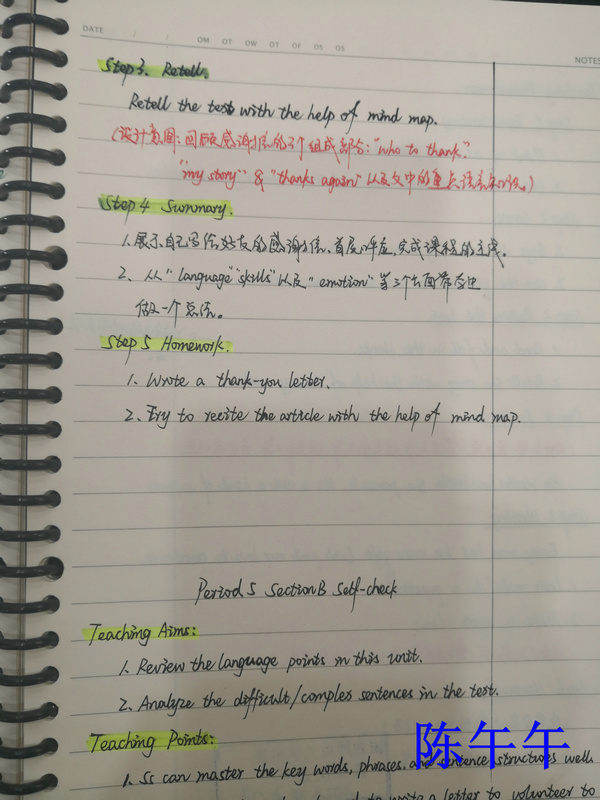 DATE
NOTES
Step 3. Retell.
Retell the text with the help of mind map.
(设计意图:回顾感谢信的三个组成部分:"who to thank"
"my story" & "thanks again" 以及文中的重点语言知识。)
Step 4 Summary.
1.展示自己写给好友的感谢信、首尾呼应,完成课程的主线。
2. 从 "language" "skills" 以及 "emotion" 等三个方面带学生
做一个总结。
Step 5 Homework.
1. Wrote a thank-you letter.
2. Try to recite the article with the help of mind map.
Period 5 Section B Self-check
Teaching Aims:
1. Review the language points in this unit.
2. Analyze the difficult/complex sentences in the text.
Teaching Points:
1. Ss can master the key words, phrases, and sentence structures well.
write a letter to volunteer to
陈午午